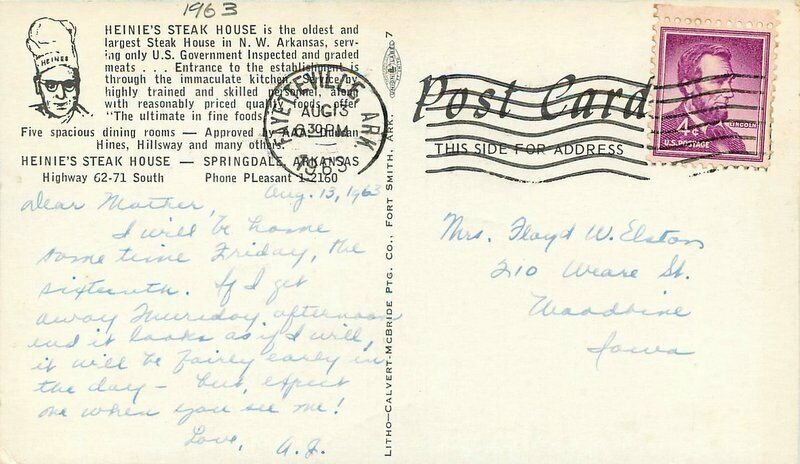 1963
HEINIE'S STEAK HOUSE is the oldest and
largest Steak House in N. W. Arkansas, serv-
ing only U.S. Government Inspected and graded
meats . . . . Entrance to the establishment is
through the immaculate kitchen. Service by
highly trained and skilled personnel, along
with reasonably priced quality foods, offer
"The ultimate in fine foods.
Five spacious dining rooms — Approved by AAA, Duncan
Hines, Hillsway and many others.
HEINIE'S STEAK HOUSE — SPRINGDALE, ARKANSAS
Highway 62-71 South Phone PLeasant 1-2160
HEINIE
Aug. 13, 1963
Dear Mother,
I will be home
some time Friday, the
sixteenth. If I get
away Thursday afternoon
and it looks as if I will,
it will be fairly early in
the day – but, expect
me when you see me!
Love, A.J.
LITHO—CALVERT-MCBRIDE PTG. CO., FORT SMITH, ARK.
7
FAYETTEVILLE, ARK
AUG 13
6:30 PM
1963
Post Card
THIS SIDE FOR ADDRESS
LINCOLN
4¢
U.S. POSTAGE
Mrs. Floyd W. Elston
210 Weare St.
Woodbine
Iowa